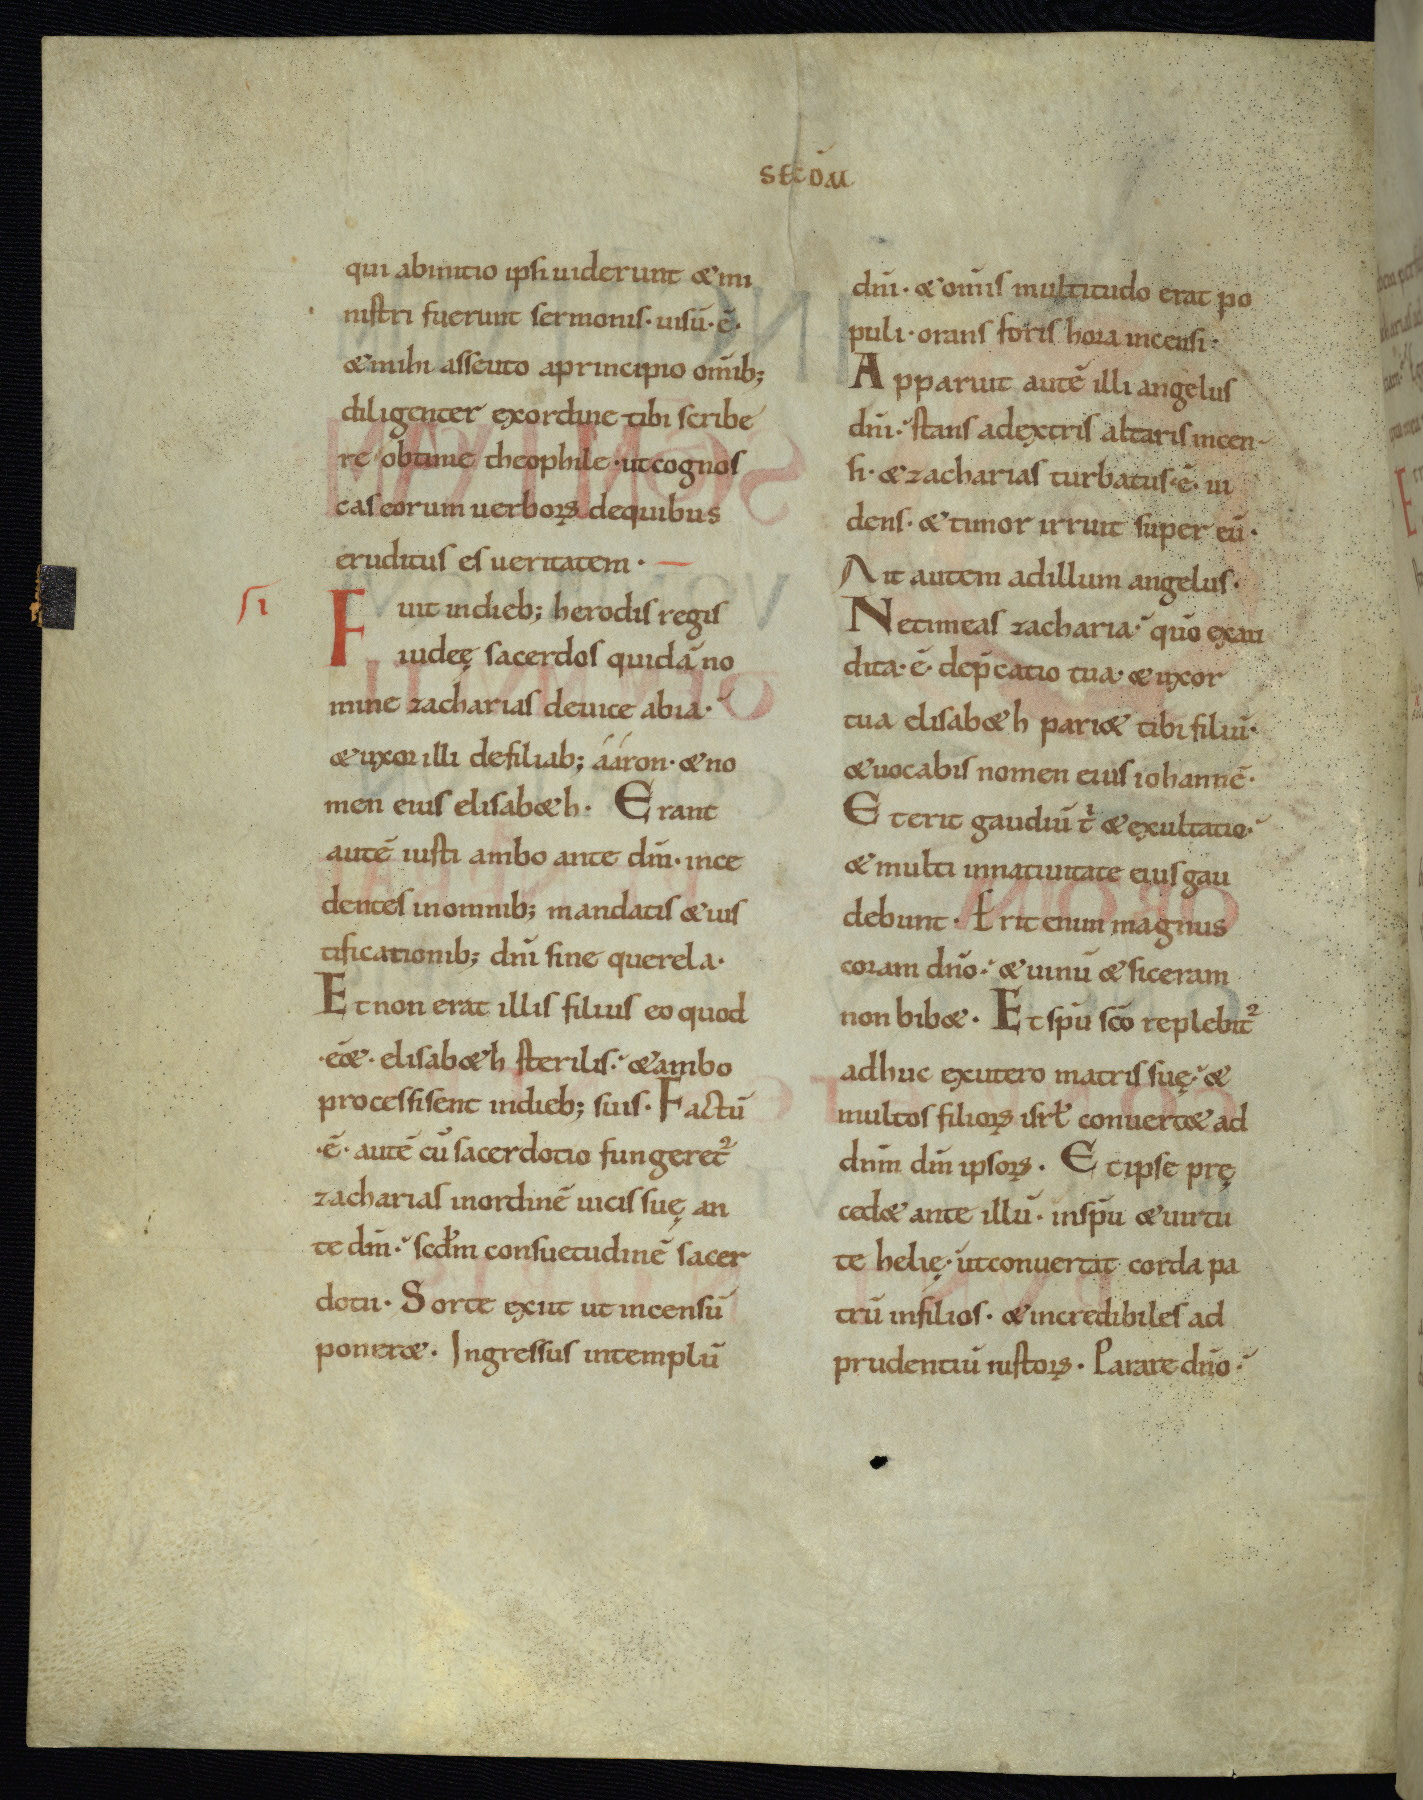 SECDM̄
qui abinitio ipsi uiderunt & mi
nistri fuerunt sermonis· uisū·ē·
& mihi assecuto aprincipio om̄ib;
diligenter exordine tibi scribe
re obtime theophile· ut cognos
cas eorum uerboꝝ dequibus
eruditus es ueritatem·
si
Fuit indieb; herodis regis
iudeę sacerdos quidā no
mine zacharias deuice abia·
& uxor illi defiliab; ááron· & no
men eius elisab&h· Erant
autē iusti ambo ante dm̄· ince
dentes inomnib; mandatis & ius
tificationib; dn̄i sine querela·
Et non erat illis filius eo quod
·eē&· elisab&h sterilis· & ambo
processissent indieb; suis· Factū
·ē· autē cū sacerdotio fungeret᷑
zacharias inordinē uicis suę an
te dm̄· scd̄m consuetudinē sacer
dotii· Sorte exiit ut incensū
poner&· Ingressus intemplū
dn̄i· & om̄is multitudo erat po
puli· orans foris hora incensi·
Apparuit autē illi angelus
dn̄i· stans adextris altaris incen-
si· & zacharias turbatus·ē· ui
dens· & timor irruit super eū·
Ait autem adillum angelus·
Netimeas zacharia· quō exau
dita·ē· dep̄catio tua· & uxor
tua elisab&h pari& tibi filiū·
& uocabis nomen eius iohannē·
Et erit gaudiū t̄ & exultatio·
& multi innatiuitate eius gau
debunt· Erit enim magnus
coram dn̄o· & uinū & siceram
non bib&· Et sp̄u sc̄o replebit᷑
adhuc exutero matris suę· &
multos filioꝝ isrł conuert& ad
dn̄m dm̄ ipsoꝝ· Et ipse prę
ced& ante illū· insp̄u & uirtu
te helię· utconuertat corda pa
trū infilios· & incredibiles ad
prudentiū iustoꝝ· Parare dn̄o·